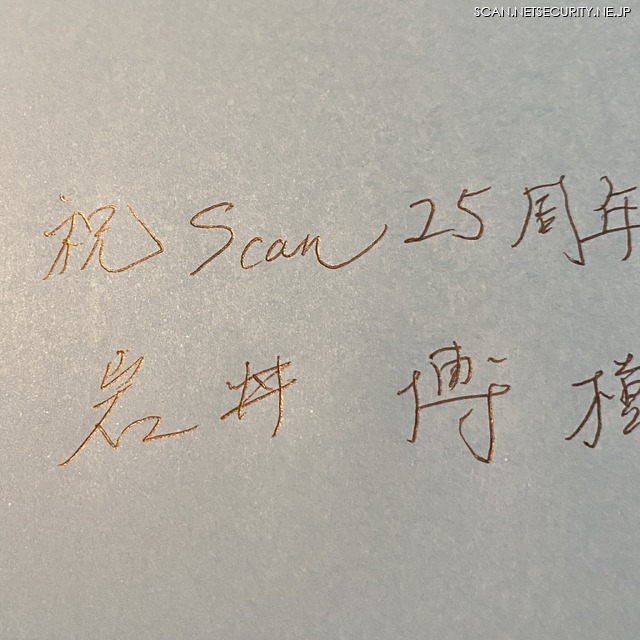 SCAN.NETSECURITY.NE.JP
祝 Scan 25周年
岩井 博樹